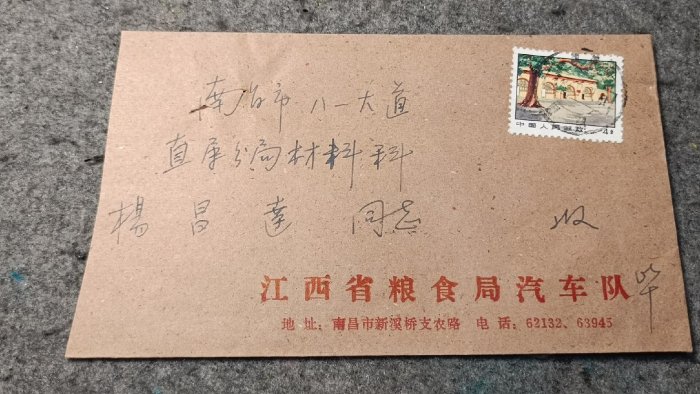 中国人民邮政
南昌市八一大道
直属分局材料科
楊昌達 同志 收
江西省粮食局汽车队 毕
地址：南昌市新溪桥支农路 电话：62132、63945